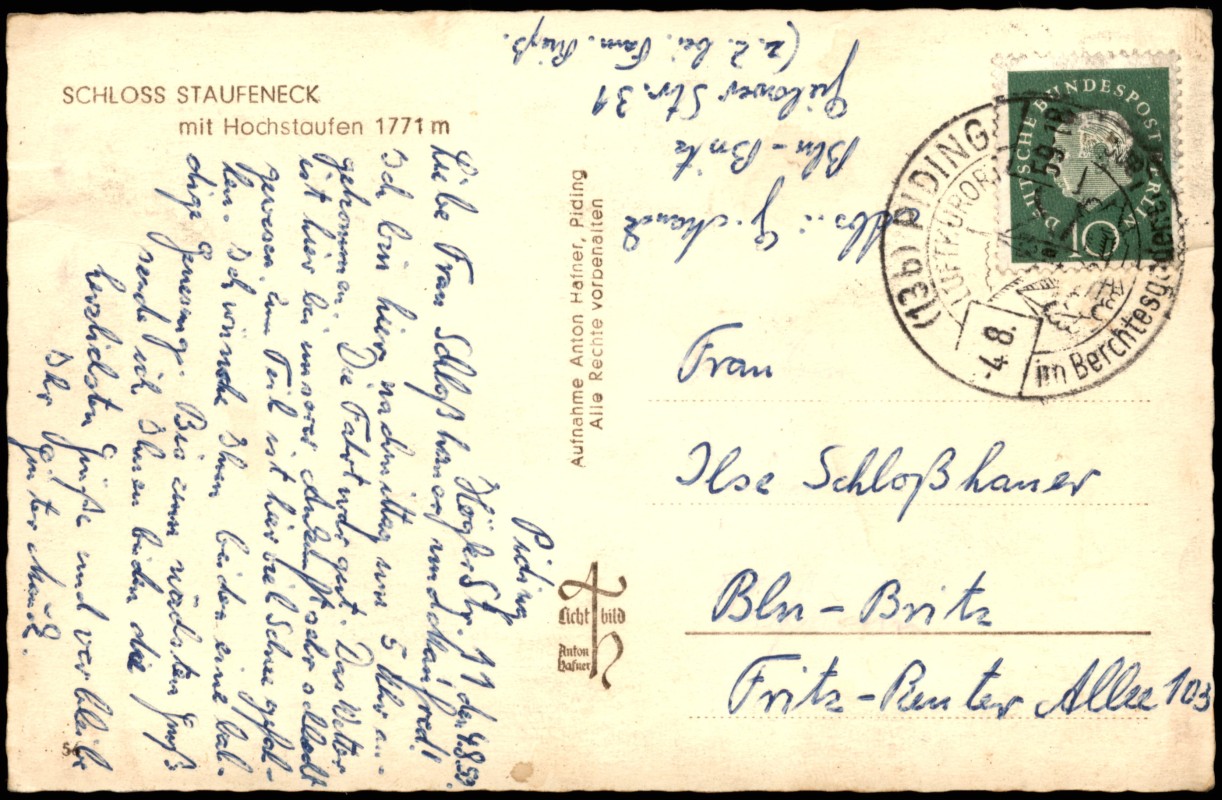 SCHLOSS STAUFENECK
mit Hochstaufen 1771 m
Piding
Högler Str. 11 den 4.8.59.
Liebe Frau Schloßhauer und Manfred!
Ich bin hier nachmittag um 5 Uhr an-
gekommen. Die Fahrt war gut. Das Wetter
ist hier bei unserer Ankunft sehr schlecht
gewesen, zum Teil ist hier viel Schnee gefal-
len. Ich wünsche Ihnen beiden eine bal-
dige Genesung. Bis zum nächsten Gruß
sende ich Ihnen beiden die
herzlichsten Grüße und verbleibe
Ihr Günter
56
Aufnahme Anton Hafner, Piding
Alle Rechte vorbehalten
Licht bild
Anton
Hafner
Abs.: G.
Bln-Britz
Str. 31
(z.Z. bei Fam.
DEUTSCHE BUNDESPOST BERLIN
10
(13b) PIDING
LUFTKURORT
im Berchtesgadener
-4.8.
59-18
Frau
Ilse Schloßhauer
Bln-Britz
Fritz-Reuter Allee 103